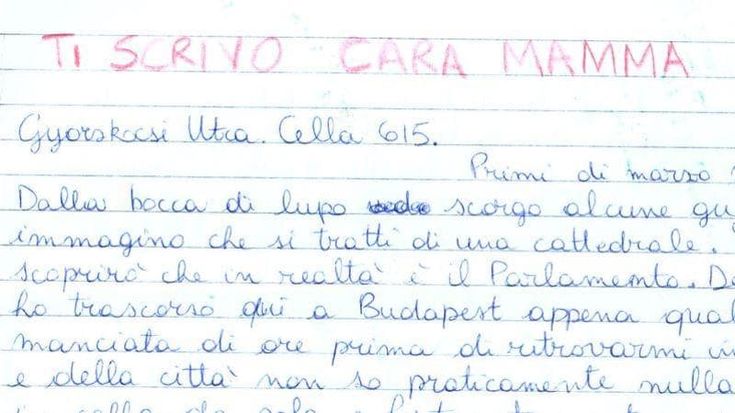 TI SCRIVO CARA MAMMA
Gyorskocsi Utca. Cella 615.
Primi di marzo
Dalla bocca di lupo scorgo alcune gu
immagino che si tratti di una cattedrale.
scoprirò che in realtà è il Parlamento. De
ho trascorso qui a Budapest appena qual
manciata di ore prima di ritrovarmi in
e della città non so praticamente nulla